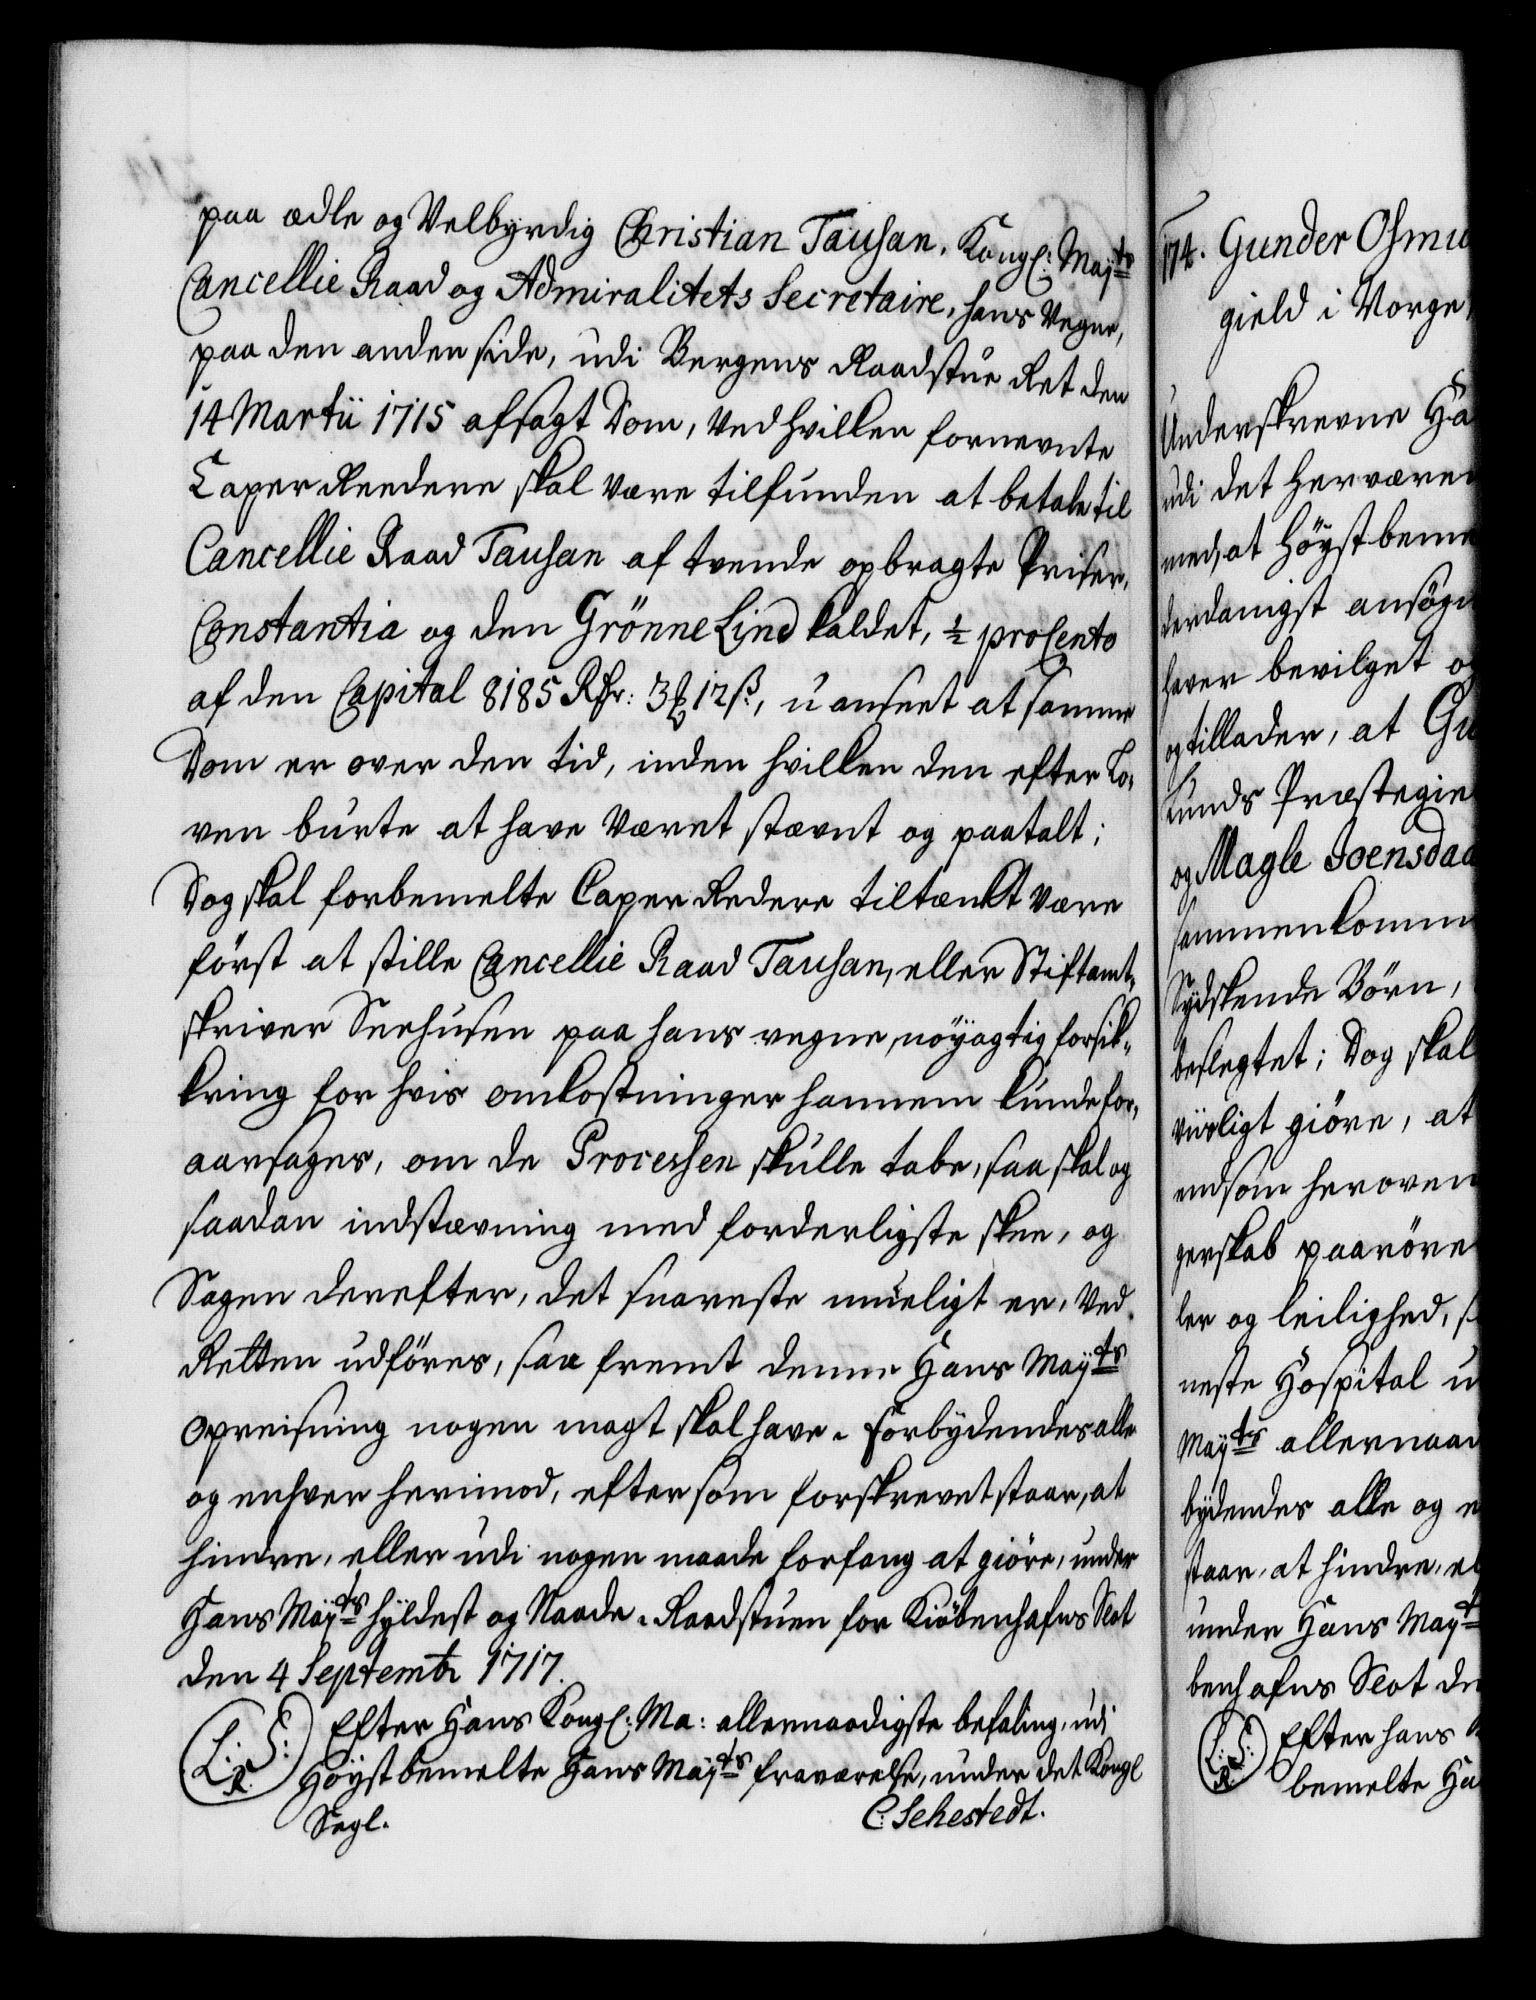 paa ædle og Velbyrdig Christian Tausan, Kongl: Mayts
Cancellie Raad og Admiralitets Secretaire, hans Vegne,
paa den anden side, udi Bergens Raadstue Ret den
14 Martii 1715 afsagt Dom, Ved hvilken fornevnte
Caper Reedere skal være tilfunden at betale til
Cancellie Raad Tausan af tvende opbragte Priser,
Constantia og den Grönne Lind kaldet, ½ proCento
af den Capital 8185 Rdr: 3 ₰ 12 ß, uanseet at samme
Dom er over den tid, inden hvilken den efter Lo-
ven burte at have Været stævnt og paatalt;
Dog skal forbemelte Caper Redere tiltænkt Være
först at stille Cancellie Raad Tausan, eller Stiftamt-
skriver Seehusen paa hans vegne, nöyagtig forsik-
kring for hvis omkostninger hannem kunde for-
aarsages, om de Processen skulle tabe, saa skal og
saadan indstævning med forderligste skee, og
Sagen derefter, det snareste mueligt er, Ved
Retten udföres, saa fremt denne Hans Mayts
opreisning nogen magt skal have. Forbydendes alle
og enhver herimod, eftersom forskrevet staar, at
hindre, eller udi nogen maade forfang at giöre, under
Hans Mayts hyldest og Naade. Raadstuen for Kiöbenhafns Slot
den 4 Septembr 1717.
(L: S: R.) Efter Hans Kongl: Ma: allernaadigste befaling, udi
Höystbemelte Hans Mayts fraværelse, under det Kongl
Segl. C: Sehestedt.
174. Gunder Osmu
gield i Norge
Underskrevne Ha
udi det herværen
med, at Höystbeme
derdanigst ansögn
haver bevilget og
og tillader, at Gu
Lunds Præstegie
og Magle Joensdaa
sammenkomm
Sydskende Börn,
beslegtet; Dog skal
viisligt giöre, at
endsom heroven
gerskab paaröre
ler og leilighed, s
neste Hospital u
Mayts allernaad
bydendes alle og e
staar, at hindre, el
under Hans Mayt
benhafns Slot de
(L: S: R.) Efter hans
bemelte Ha